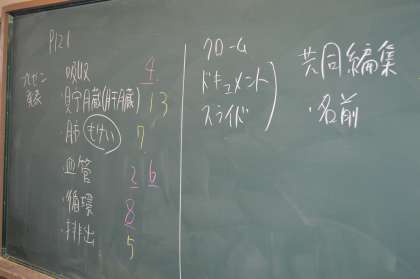 P121
プレゼン
発表
吸収 4
貯蔵(肝臓) 13
肺 もけい 7
血管 2 6
・循環 8
・排出 5
クローム
ドキュメント
スライド
共同編集
・名前